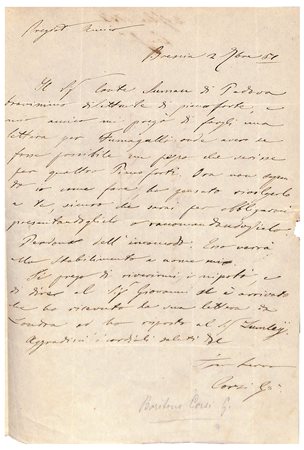 Pregiat. Amico
Brescia 2
Il Sigr Conte di Padova
di pianoforte, e
mio amico mi prega di fargli una
lettera per Fumagalli onde avere se
fosse possibile un pezzo che scrisse
per quattro Pianoforti. Ora non
io come fare ho pensato
a te, sicuro che vorrai per
presentandoglielo o raccomandandoglielo
Perdona dell'incomodo. Esso verrà
allo Stabilimento a nome mio
Ti prego di riverirmi i nipoti e
di dire al Sigr Giovanni che è arrivato
che ho ricevuto la sua lettera da
Londra ed ho risposto al Sigr Lumley.
Aggradirai i cordiali saluti del
tuo
Corsi G.
Baritono Corsi G.